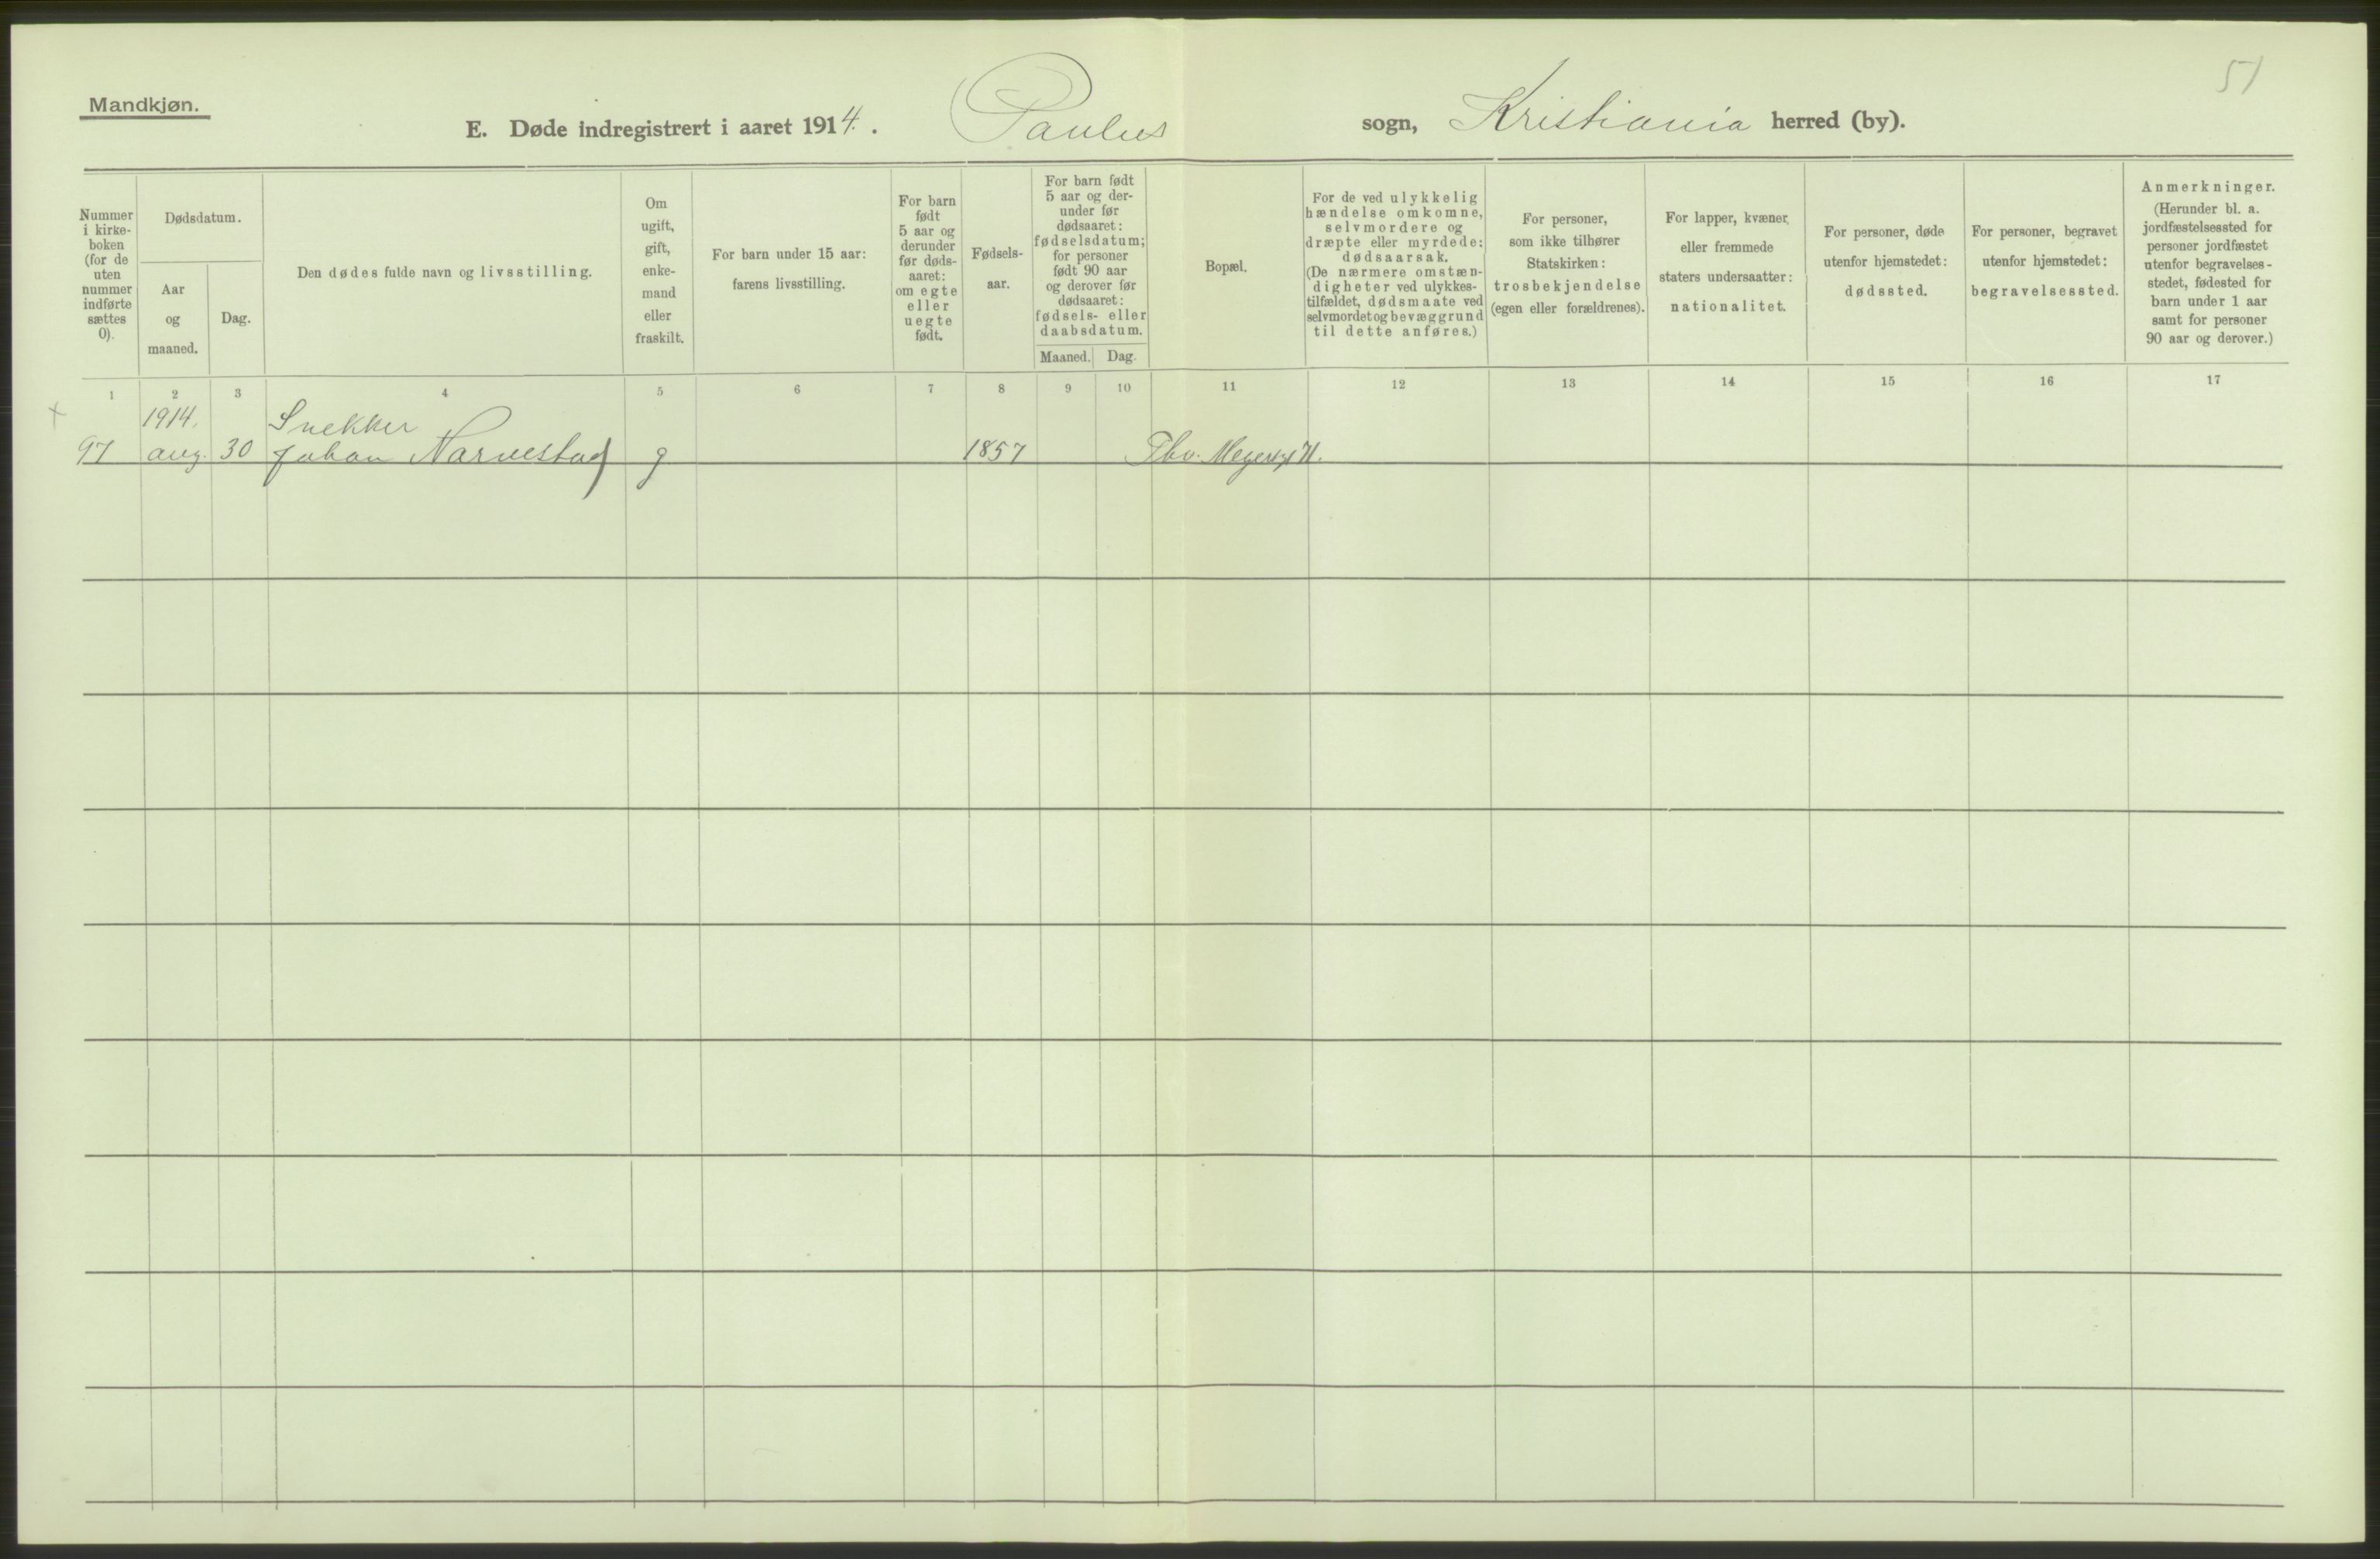 51
Mandkjøn.
E. Døde indregistrert i aaret 1914. Paulus sogn, Kristiania herred (by).
Nummer
i kirke-
boken
(for de
uten
nummer
indførte
sættes
0).
Dødsdatum.
Aar
og
maaned.
Dag.
Den dødes fulde navn og livsstilling.
Om
ugift,
gift,
enke-
mand
eller
fraskilt.
For barn under 15 aar:
farens livsstilling.
For barn
født
5 aar og
derunder
før døds-
aaret:
om egte
eller
uegte
født.
Fødsels-
aar.
For barn født
5 aar og der-
under før
dødsaaret:
fødselsdatum;
for personer
født 90 aar
og derover før
dødsaaret:
fødsels- eller
daabsdatum.
Maaned. Dag.
Bopæl.
For de ved ulykkelig
hændelse omkomne,
selvmordere og
dræpte eller myrdede:
dødsaarsak.
(De nærmere omstæn-
digheter ved ulykkes-
tilfældet, dødsmaate ved
selvmordet og bevæggrund
til dette anføres.)
For personer,
som ikke tilhører
Statskirken:
trosbekjendelse
(egen eller forældrenes).
For lapper, kvæner
eller fremmede
staters undersaatter:
nationalitet.
For personer, døde
utenfor hjemstedet:
dødssted.
For personer, begravet
utenfor hjemstedet:
begravelsessted.
Anmerkninger.
(Herunder bl. a.
jordfæstelsessted for
personer jordfæstet
utenfor begravelses-
stedet, fødested for
barn under 1 aar
samt for personer
90 aar og derover.)
1 2 3 4 5 6 7 8 9 10 11 12 13 14 15 16 17
1914. Snekker
97 aug. 30 Johan Narvestad g 1857 Thv. Meyersgt